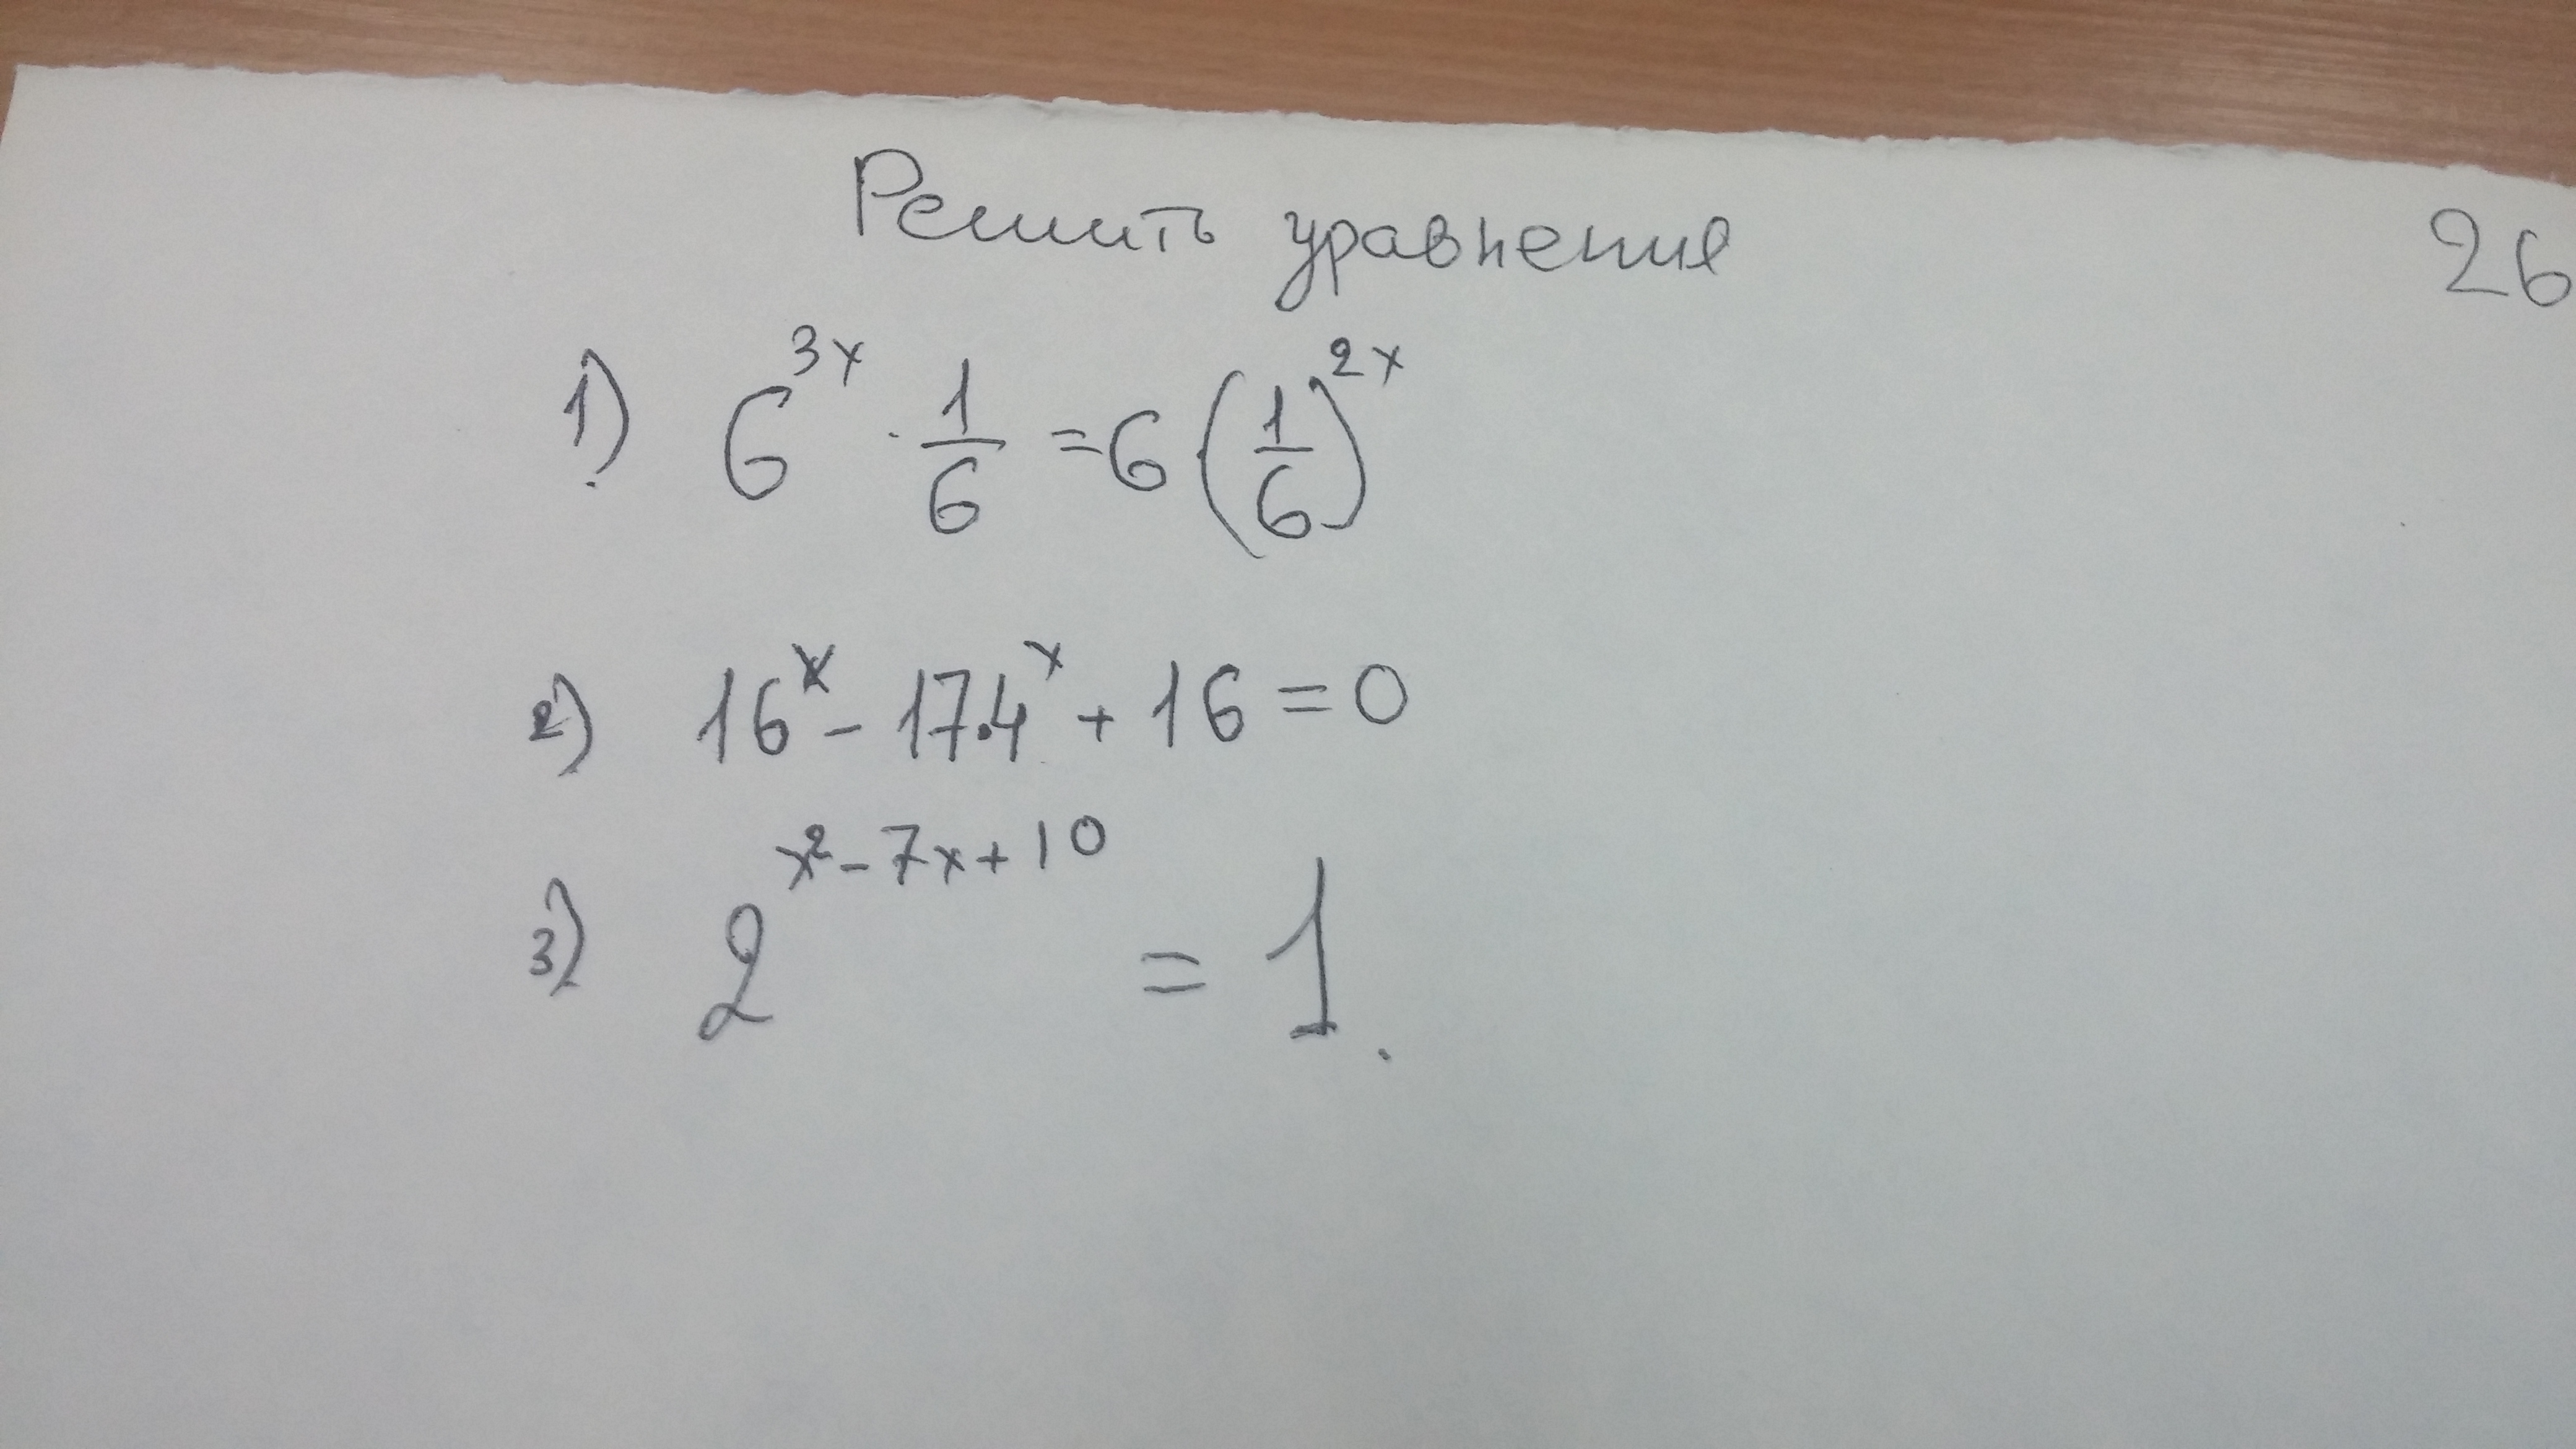 Решить уравнения
26
1) 6^{3x} · \frac{1}{6} = 6 (\frac{1}{6})^{2x}
2) 16^x - 17.4^x + 16 = 0
3) 2^{x^2 - 7x + 10} = 1.